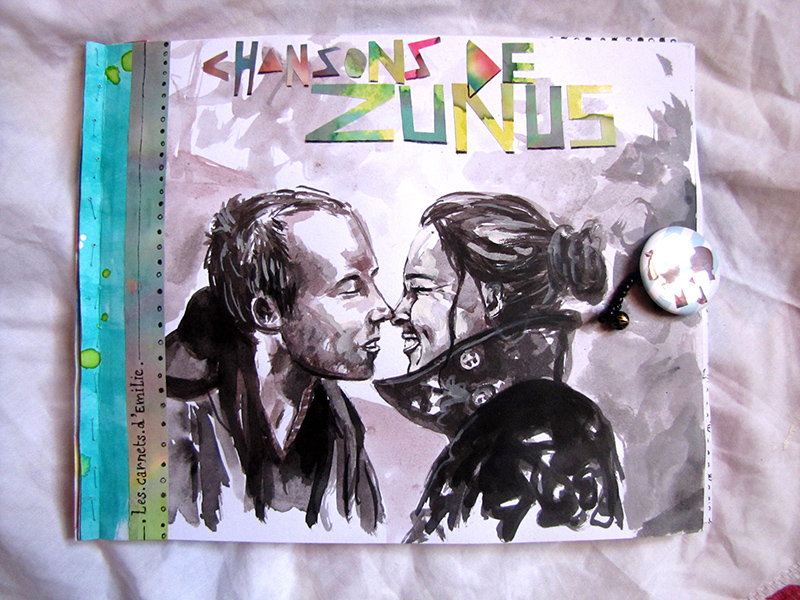 CHANSONS DE
ZUNUS
_. Les.carnets.d'EmiLie.